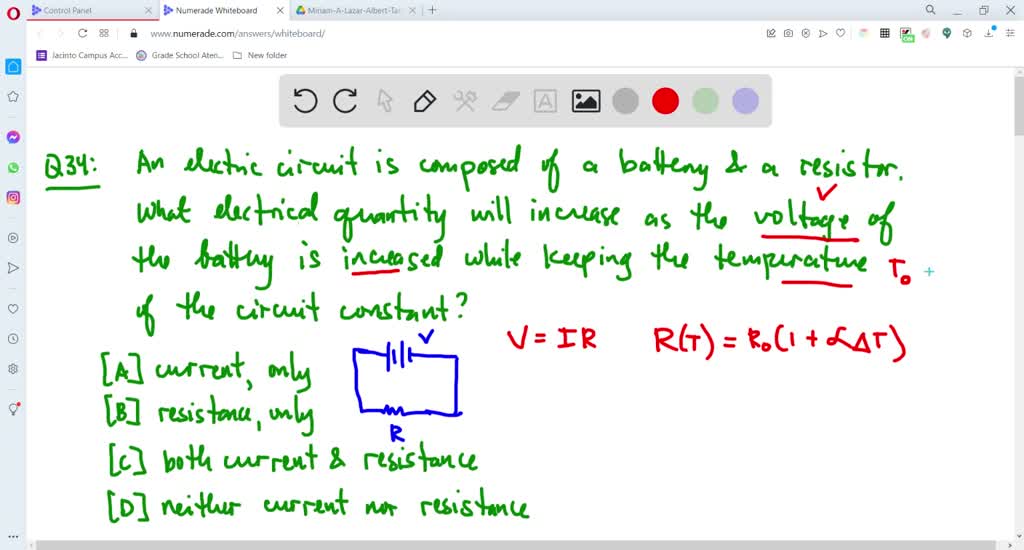 Control Panel
Numerade Whiteboard
Miriam-A-Lazar-Albert-Tar
www.numerade.com/answers/whiteboard/
Jacinto Campus Acc...
Grade School Aten...
New folder
A
Q34: An electric circuit is composed of a battery & a resistor.
What electrical quantity will increase as the voltage of
the battery is increased while keeping the temperature T₀ +
of the circuit constant?
V
V = IR R(T) = R₀(1 + αΔT)
[A] current, only
[B] resistance, only
R
[C] both current & resistance
[D] neither current nor resistance